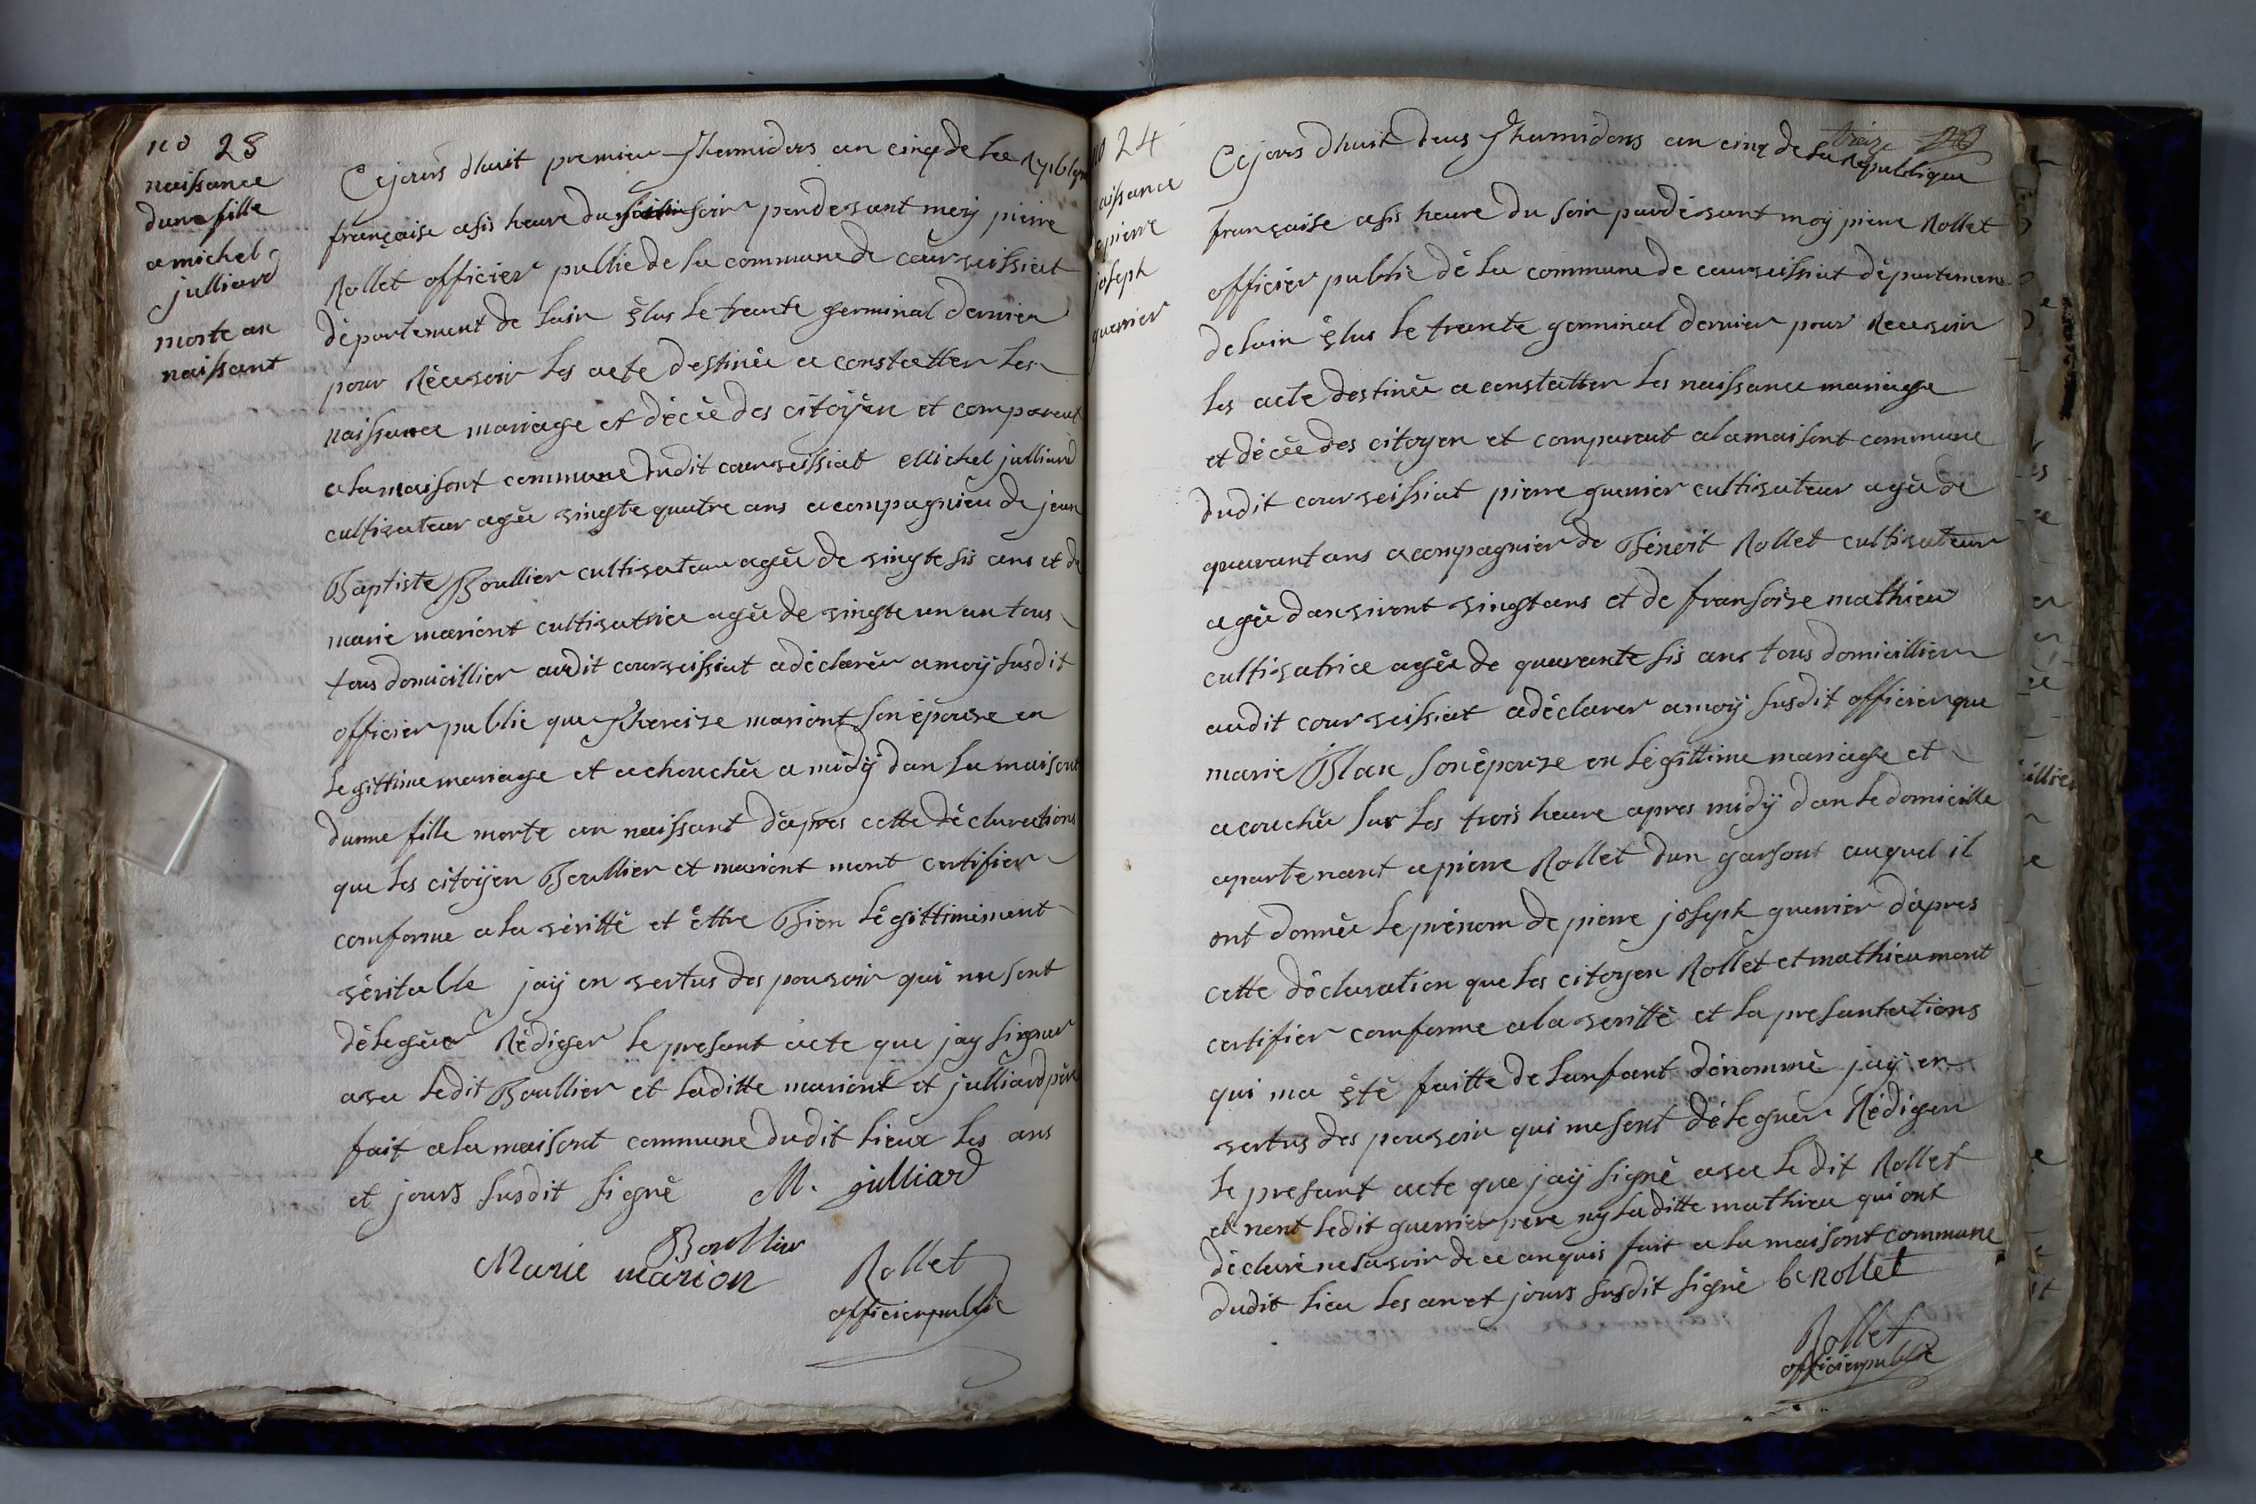 no 23
naissance
dune fille
a michel
julliard
morte an
naissant
Cejours dhuit premier Thermidors an cinq de la Republique
française asis heure du soir pardevant moy pierre
Rollet officier publie de la commune de courseissiat
département de lain élus le trante germinal dernier
pour Récevoir les acte destinée a constatter les
naissance mariage et décée des citoyën et comparent
a la maisont commune dudit courseissiat Michel julliard
cultivateur agée vingte quatre ans acompagnieu de jean
Baptiste Boullier cultivateur agée de vingte sis ans et de
marie mariont cultivatrice agée de vingte un an tous
tous domicillier audit courseissiat a déclarér a moÿ susdit
officier publie que Thereize mariont son épouze en
legittime mariage et achouchée a midÿ dan la maisont
dunne fille morte an naissant dápres cette déclarations
que les citoÿen Boullier et mariont mont certifier
conforme a la véritté et éttre Bien légittimement
véritable jaÿ en vertus des pouvoir qui me sont
déleguér Rédiger le presant acte que jay signer
avec ledit Boullier et laditte mariont et julliard pére
fait a la maisont commune dudit lieux les ans
et jours susdit signé M. julliard
Boullier
Marie marion Rollet
officier publie
no 24
naissance
de pierre
joseph
guerrier
treize
Cejours dhuit deus Thermidors an cinq de la Republique
française asis heure du soir pardévant moÿ pierre Rollet
officiér publie dé la commune de courseissiat département
de lain élus le trante germinal dernier pour Recevoir
les acte destinée a constatter les naissance mariage
et décée des citoyen et comparent a la maisont commune
dudit courseissiat pierre guerrier cultivateur agée de
quarant ans acompagnier de Bénoit Rollet cultivateur
agée danviront vingt ans et de fransoize mathieu
cultivatrice agée de quarante sis ans tous domicillier
audit courseissiat a déclarer a moÿ susdit officier que
marie Blan son épouze en légittime mariage et
acouchée sur les trois heure apres midÿ dan le domicille
apartenant a pierre Rollet dun garsont auquel il
ont donnée le prénom de pierre joseph guerrier dápres
cette déclaration que les citoyen Rollet et mathieu mont
certifier conforme a la veritté et la presantations
qui ma été faitte de lanfant dénommé jaÿ en
vertus des pouvoir qui me sont déleguer Rédiger
le presant acte que jaÿ signé avec le dit Rollet
et nont ledit guerrier pere ny laditte mathieu qui ont
déclaré ne savoir de ce anquis fait a la maisont commune
dudit lieu les an et jours susdit signé be Rollet
Rollet
officier publie